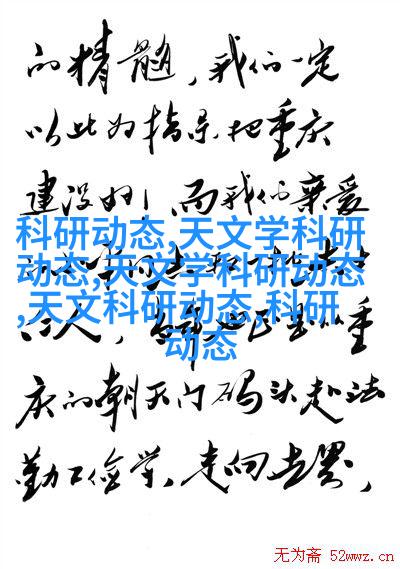 的精髓，我们一定
以此为指导把重庆
建设好！而我们亲爱
科研动态,天文学科研
动态,天文学科研动态
,天文科研动态,科研
动态
人，是从重
庆的朝天门码头赴法
勤工俭学，走向世界，
无为斋 52wwz.cn